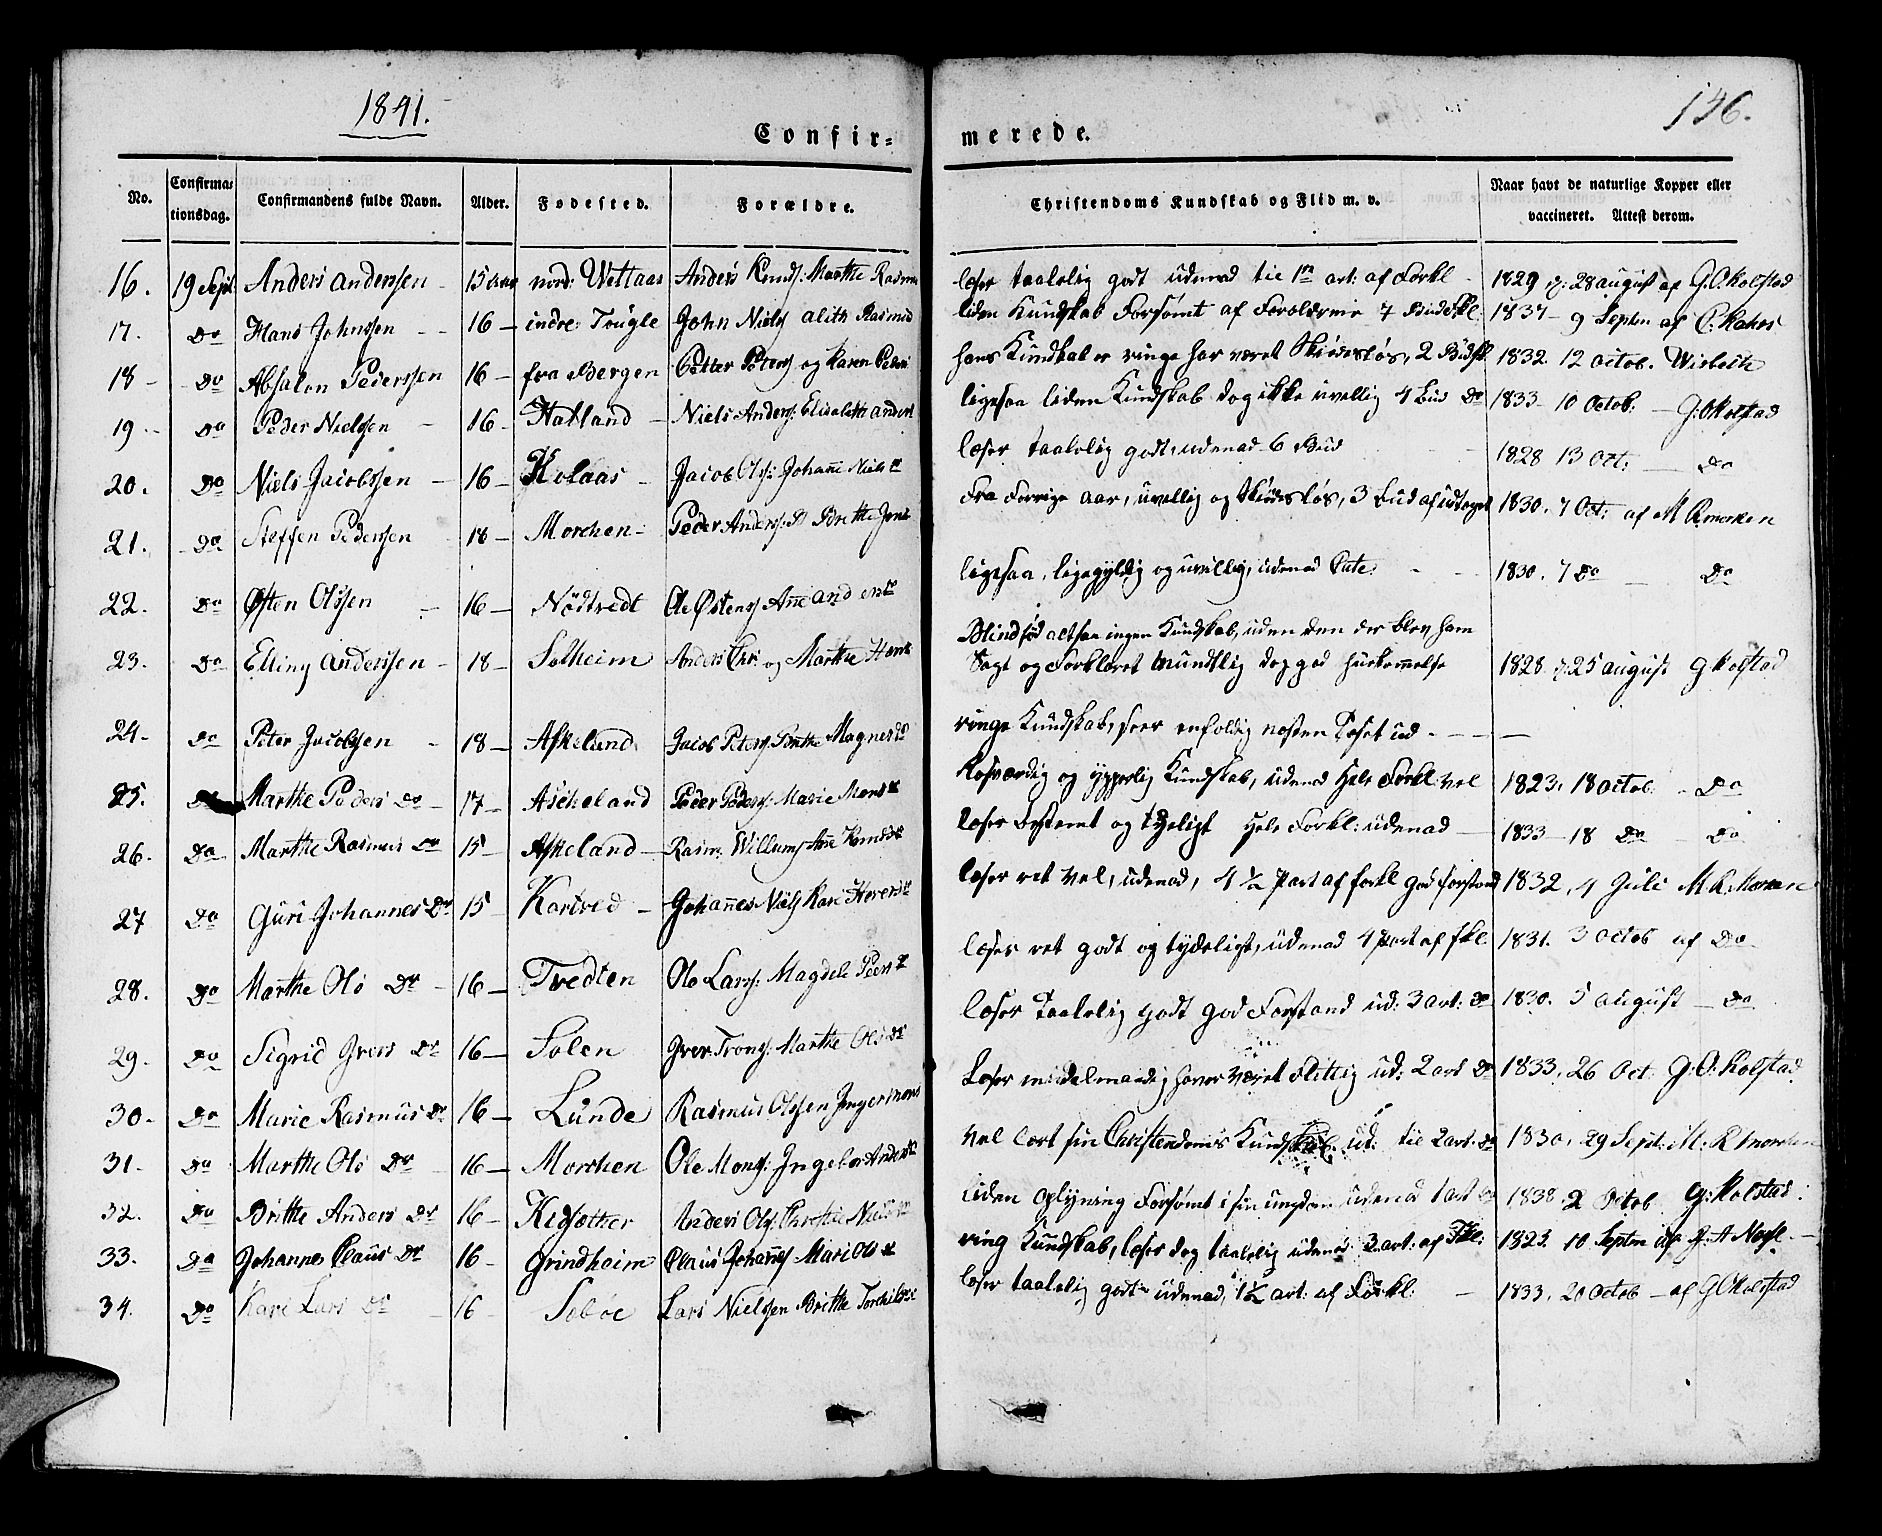 1841.
146.
Confir=
merede.
No.
Confirma=
tionsdag.
Confirmandens fulde Navn.
Alder.
Fødested.
Forældre.
Christendoms Kundskab og Flid m. v.
Naar havt de naturlige Kopper eller
vaccineret. Attest derom.
16. 19 Sept. Anders Anderssen 15 aar nord: Wettaas Anders Knuds: Marthe Rasm læser taalelig godt udenad til 1ste art: af Forkl 1829 d: 28 august af G. O. Kolstad
17. Do Hans Johnssen 16 indre: Tougle John Niels Alith Rasmusd liden Kundskab Forsømt af Forældrene 7 1837 9 Septm af
18 Do Absalon Pederssen 16 fra Bergen Petter Peters og Karen Peders hans Kundskab er ringe har været Skiødesløs, 2 1832 12 Octob.
19 Do Peder Nielssen 16 Hatland Niels Anders: Elisabeth Anders ligesaa liden Kundskab dog ikke uvillig 4 Bud Do 1833 10 Octob: G: Kolstad
20. Do Niels Jacobssen 16 Kolaas Jacob Ols: Johanne Niels Dr læser taalelig godt, udenad 6 Bud 1828 13 Oct: Do
21. Do Steffen Pederssen 18 Morchen Peder Anders: Brithe Jens Fra Forrige Aar, uvillig og Skiødesløs, 3 Bud af 1830. 7 Oct: af M R morken
22. Do Østen Olssen 16 Nødtvedt Ole Østens Anne Anders Dr ligesaa, ligegyldig og uvillig, udenad 1830. 7 Do Do
23. Do Elling Anderssen 18 Solheim Anders Chr: og Marthe Hans Blindfød altsaa ingen Kundskab, uden den der blev ham
Sagt og Forklaret Mundtlig dog god hukommelse 1828 d: 25 august G Kolstad
24. Do Peter Jacobssen 18 Askelund Jacob Peters. Brithe Magnes Dr ringe Kundskab, seer enfoldig næsten Løset ud
25. Do Marthe Peders Do 17 Ascheland Peder Peders: Marie Mons Dr Rosværdig og ypperlig Kundskab, udenad Hele Forkl vel 1823. 18 Octob Do
26. Do Marthe Rasmus Do 15 Askeland Rasm: Willums Ane Knuds Dr læser Bestemt og tydeligt Hele Forkl: udenad 1833 18 Do Do
27 Do Guri Johannes Dr 15 Kartved Johannes Niels Kari Havers Dr læser ret vel, udenad, 4 1/2 Part af forkl god forstand 1832, 4 Juli M. R. Morken
28. Do Marthe Ols Dr 16 Tvedten Ole Lars: Magdele Peers Dr læser ret godt og tydeligt, udenad 4 Part af fkl 1831. 3 Octob af Do
29. Do Sigrid Ivers Dr 16 Solen Iver Trons: Marthe Ols Dr læser Taalelig godt god Forstand ud: 3 art: Do 1830. 5 august Do
30. Do Marie Rasmus Dr 16 Lunde Rasmus Olssen Inger Mons Læser middelmaadig haver været Flittig ud: 2 art Do 1833. 26 Oct G: O: Kolstad
31. Do Marthe Ols Dr 16 Morchen Ole Mons: Ingebor Anders Dr vel lært sin Christendoms Kundskab: ud: til 2 art: Do 1830. 29 Sept: M: R morken
32. Do Brithe Anders Dr 16 Anders Ols: Christie Niels Dr liden oplysning Forsømt i sin ungdom udenad 1 art Do 1838. 2 Octob G: Kolstad
33. Do Johannes Claus Dr 16 Grindheim Claus Johans Mari Ols Dr ring Kundskab, læser dog taalelig udenad 3 art: af Fkl: 1823. 10 Septm af
34. Do Kari Lars Dr 16 Sobøe Lars Nielssen Brithe Torchilds læser taalelig godt udenad, 1 1/2 art: af Forkl: 1833. 20 Octob af G O Kolstad